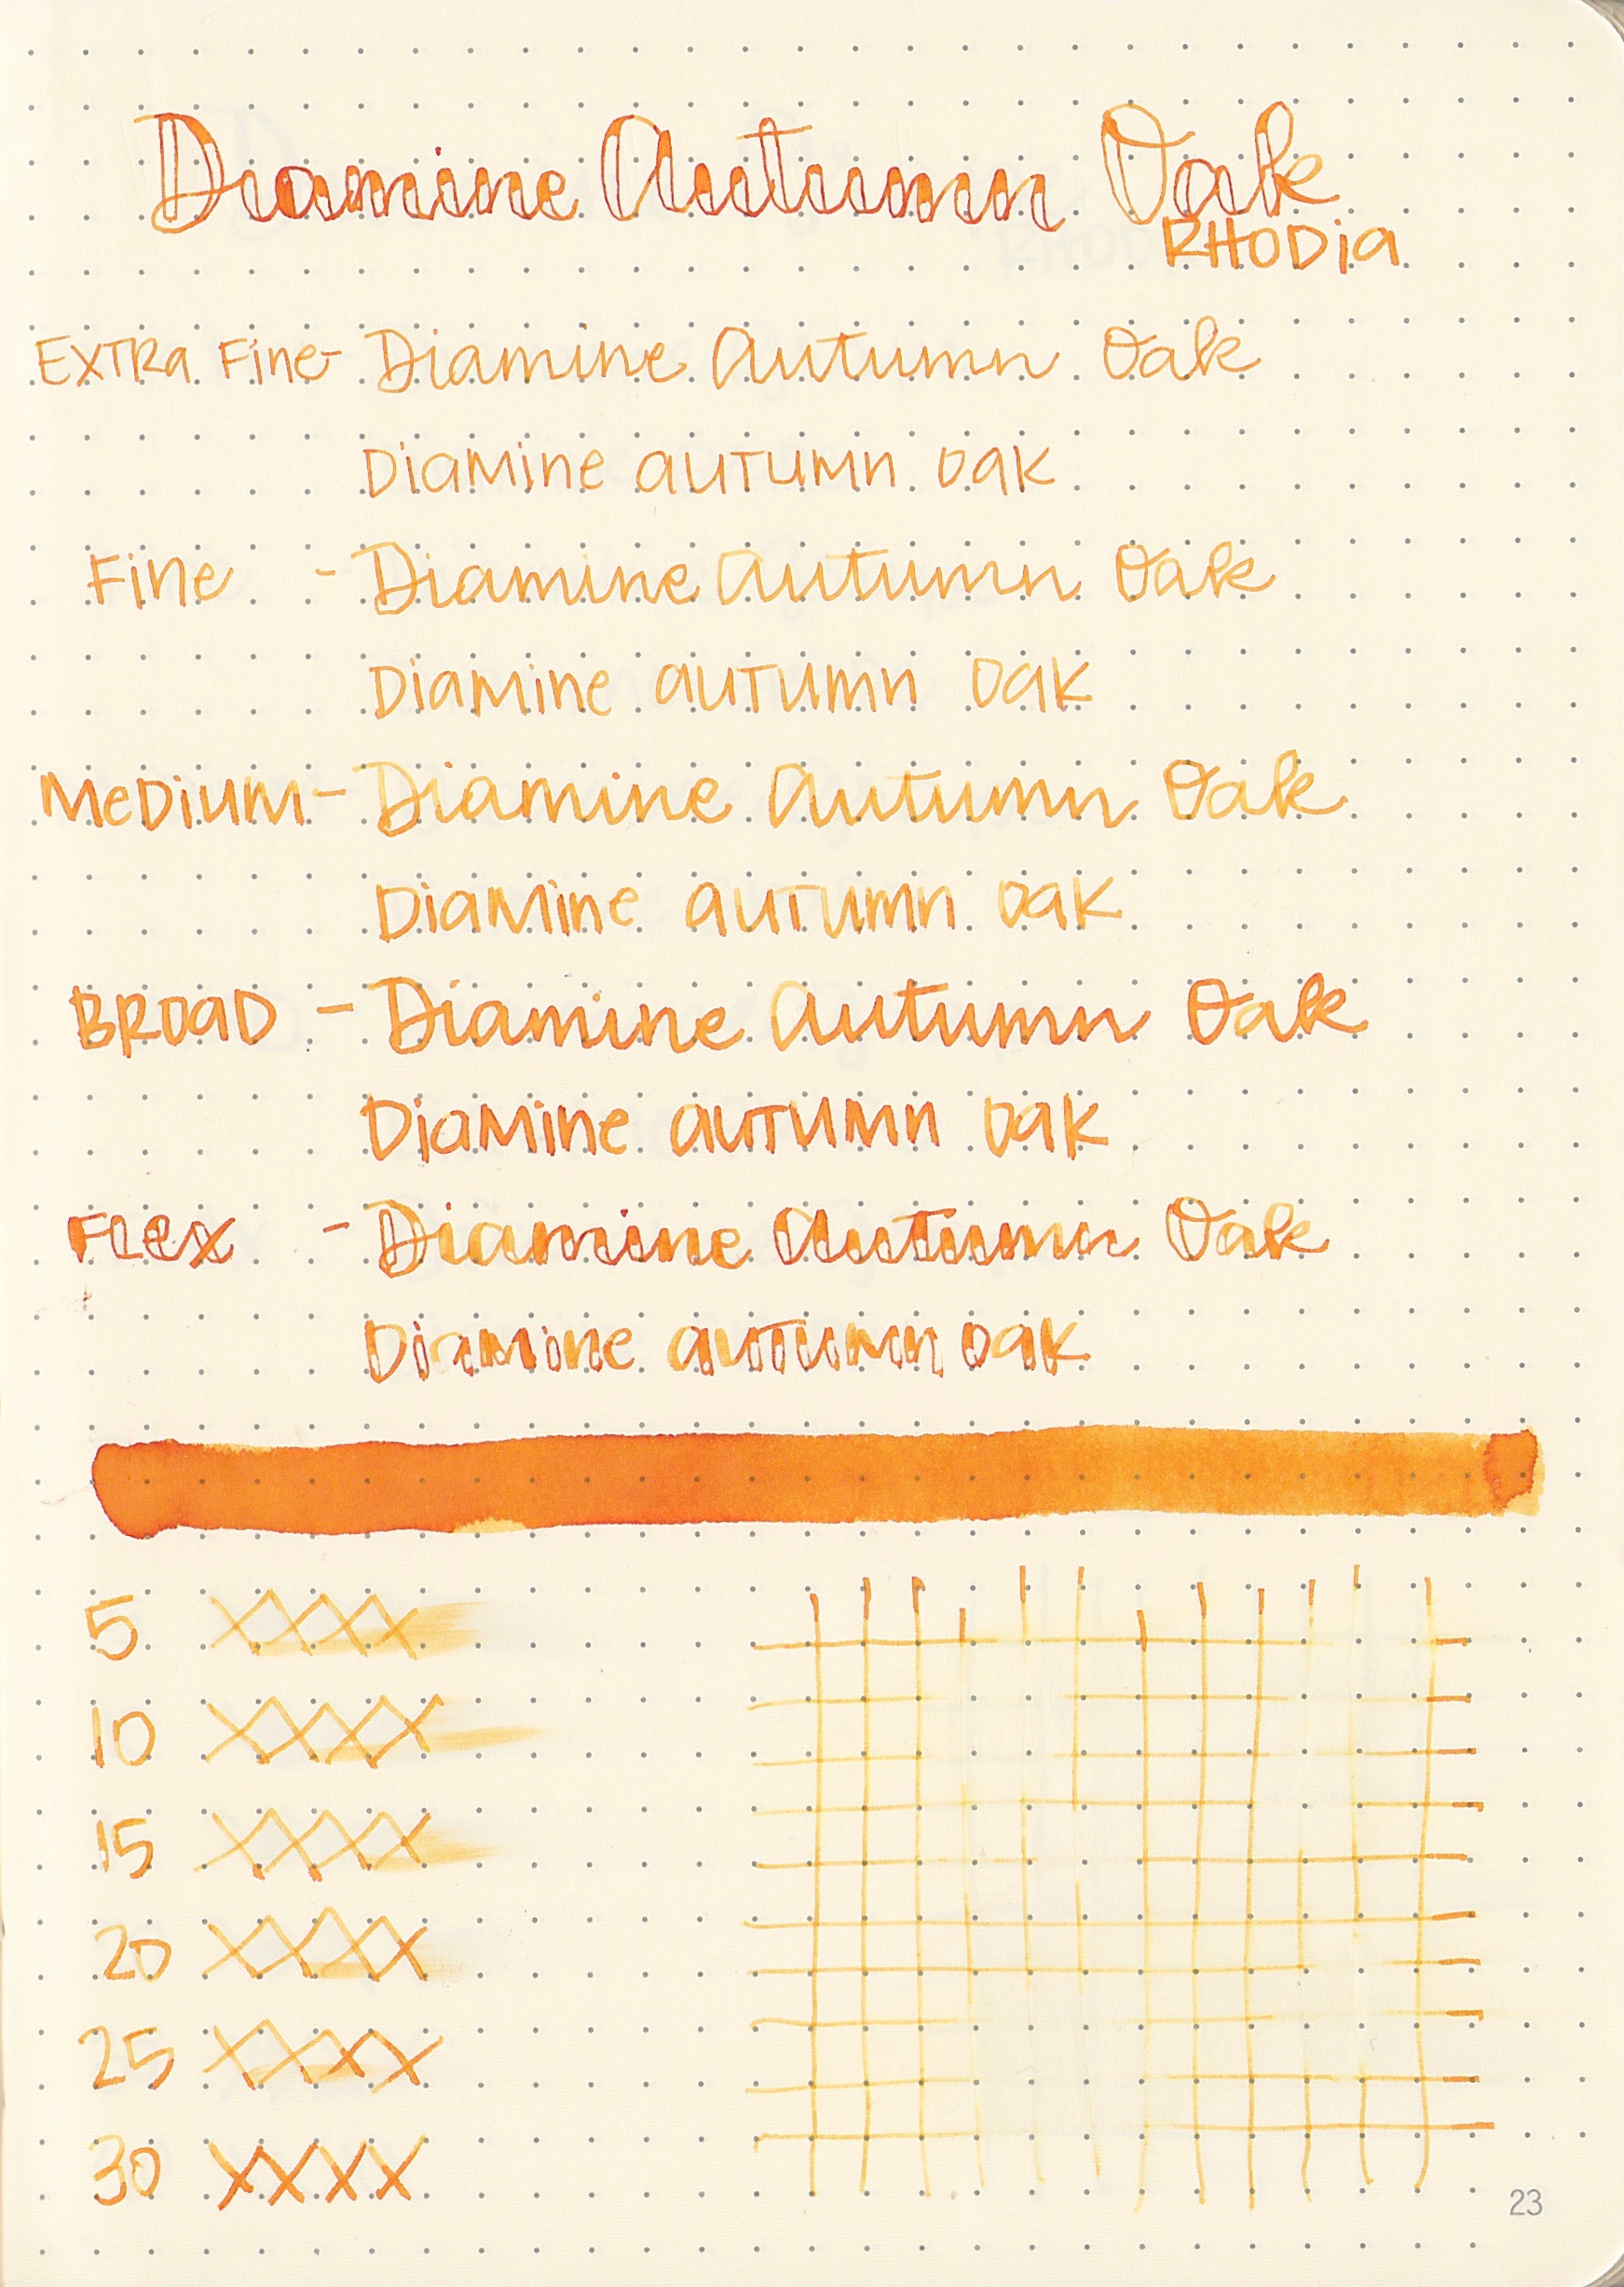 Diamine Autumn Oak
RHODIA
EXTRA Fine - Diamine Autumn Oak
Diamine autumn oak
Fine - Diamine Autumn Oak
Diamine autumn oak
MEDIUM - Diamine Autumn Oak
Diamine autumn oak
BROAD - Diamine Autumn Oak
Diamine autumn oak
Flex - Diamine Autumn Oak
Diamine autumn oak
5 XXXX
10 XXXX
15 XXXX
20 XXXX
25 XXXX
30 XXXX
23